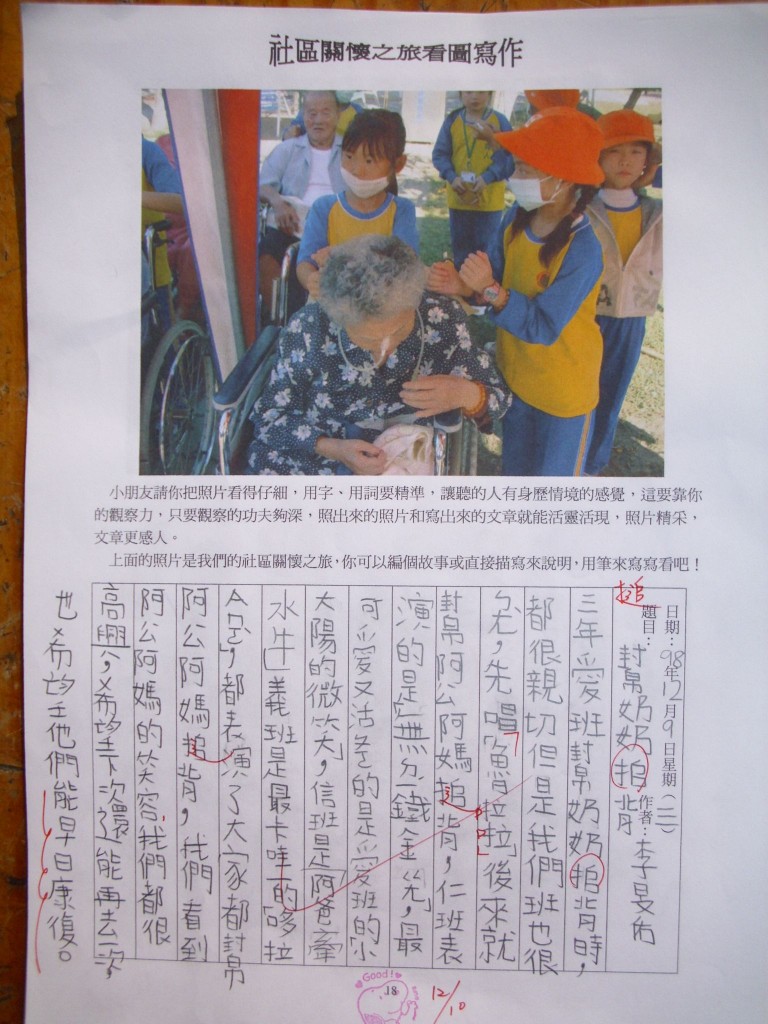 社區關懷之旅看圖寫作
小朋友請你把照片看得仔細，用字、用詞要精準，讓聽的人有身歷情境的感覺，這要靠你
的觀察力，只要觀察的功夫夠深，照出來的照片和寫出來的文章就能活靈活現，照片精采，
文章更感人。
上面的照片是我們的社區關懷之旅，你可以編個故事或直接描寫來說明，用筆來寫寫看吧！
日期：98年12月9日星期（三）
題目：封帛奶奶掐背 作者：李旻
搥
三年愛班封帛奶奶掐背時，
都很親切但是我們班也很
ㄅㄤ，先唱「魚拉拉」後來就
封帛阿公阿媽掐背，仁班表
演的是「無分鐵金ㄍㄤ」，最
可愛又活ㄆㄛ的是愛班的「小
太陽的微笑」，信班是「阿爸牽
水牛」義班是最卡哇一的「哆拉
A ㄇㄥ」，都表演了大家都封帛
阿公阿媽掐背，我們看到
阿公阿媽的笑容，我們都很
高興，希望下次還能再去一次，
也希望他們能早日康復。
Good!
18
12/10